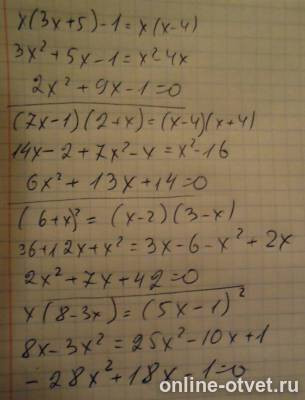 x(3x+5)-1=x(x-4)
3x²+5x-1=x²-4x
2x²+9x-1=0
(7x-1)(2+x)=(x-4)(x+4)
14x-2+7x²-x=x²-16
6x²+13x+14=0
(6+x)²=(x-2)(3-x)
36+12x+x²=3x-6-x²+2x
2x²+7x+42=0
x(8-3x)=(5x-1)²
8x-3x²=25x²-10x+1
-28x²+18x-1=0
online-otvet.ru